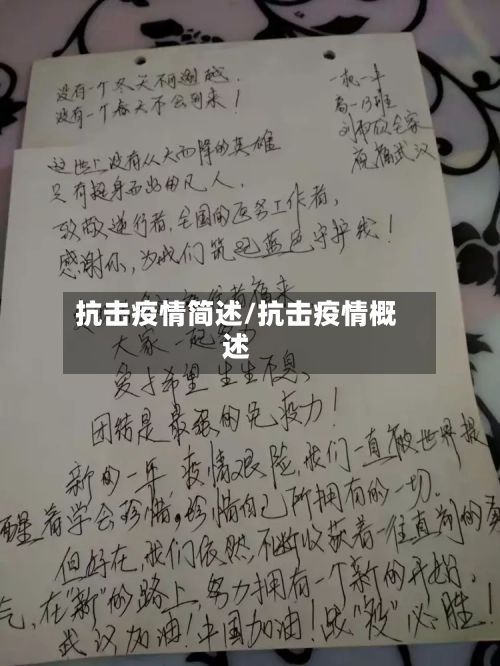 没有一个冬天不可逾越.
没有一个春天不会到来！
一执一年
高一13班
全家
祝福武汉
这世上没有从天而降的英雄
只有挺身而出的凡人,
致敬逆行者,全国的医务工作者,
感谢你,为我们筑起蓝色守护线!
抗击疫情简述/抗击疫情概
述
大家一起努力
爱与希望生生不息、
团结是最强的免疫力!
新的一年,疫情艰险,我们一直被世界提
醒着学会珍惜,珍惜自己所拥有的一切.
但好在,我们依然不断收获着一往直前的勇
气,在"新"的路上,努力拥有一个新的开始.
武汉加油!中国加油!战"疫"必胜!